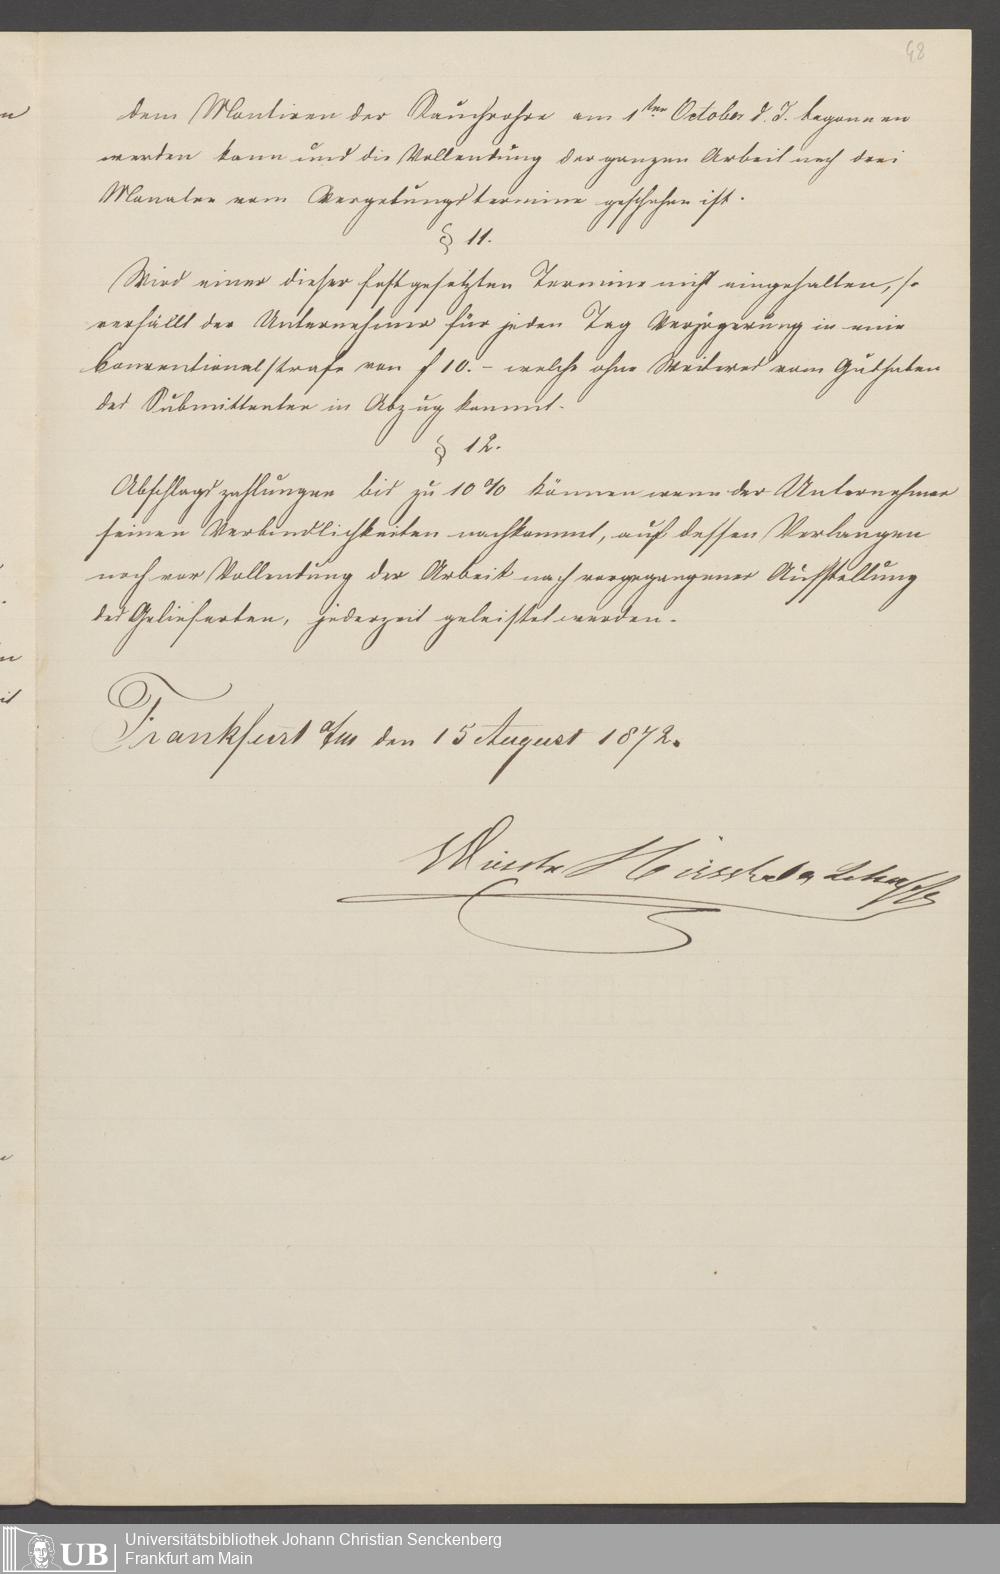 48
dem Montiren der Rauchrohre am 1ten October d. J. begonnen
werden kann und die Vollendung der ganzen Arbeit nach drei
Monaten vom Vergebungstermine geschehen ist.
§ 11.
Wird einer dieser festgesetzten Termine nicht eingehalten, so
verfällt der Unternehmer für jeden Tag Verzögerung in eine
Conventionalstrafe von f 10.– welche ohne Weiteres vom Guthaben
des Submittenten in Abzug kommt.
§ 12.
Abschlagszahlungen bis zu 10 % können wenn der Unternehmer
seinen Verbindlichkeiten nachkommt, auf dessen Verlangen
noch vor Vollendung der Arbeit nach vorgegangener Aufstellung
des Gelieferten, jederzeit geleistet werden.
Frankfurt a/m den 15 August 1872.
UB
Universitätsbibliothek Johann Christian Senckenberg
Frankfurt am Main